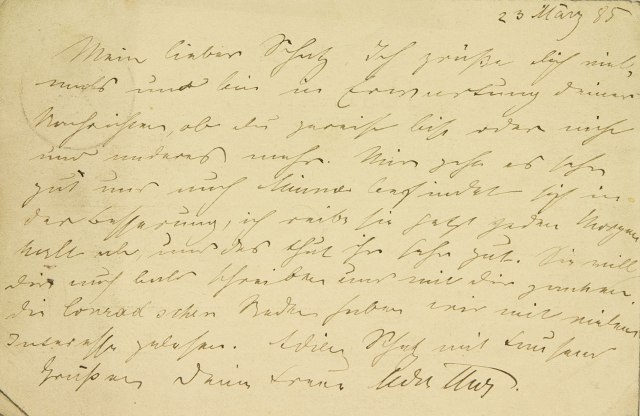 23 März 85
Mein lieber Schatz. Ich grüße dich viel-
mals und bin in Erwartung deiner
Nachrichten, ob du gereist bist oder nicht
und anderes mehr. Mir geht es sehr
gut und auch Minna befindet sich in
der Besserung, ich reibe sie jetzt jeden Morgen
kalt ab, und das thut ihr sehr gut. Sie will
dir auch bald schreiben und mit dir zanken
die Conrad'schen haben wir mit vielem
Interesse gelesen. Adieu Schatz mit tausend
Grüßen Deine treue